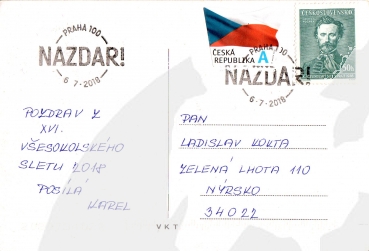 PRAHA 100
NAZDAR!
6-7-2018
ČESKÁ
REPUBLIKA A
ČESKOSLOVENSKO
50h
PRAHA 100
NAZDAR!
6-7-2018
POZDRAV Z
XVI.
VŠESOKOLSKÉHO
SLETU 2018
POSÍLÁ
KAREL
PAN
LADISLAV KOKTA
ZELENÁ LHOTA 110
NÝRSKO
34022
VKT